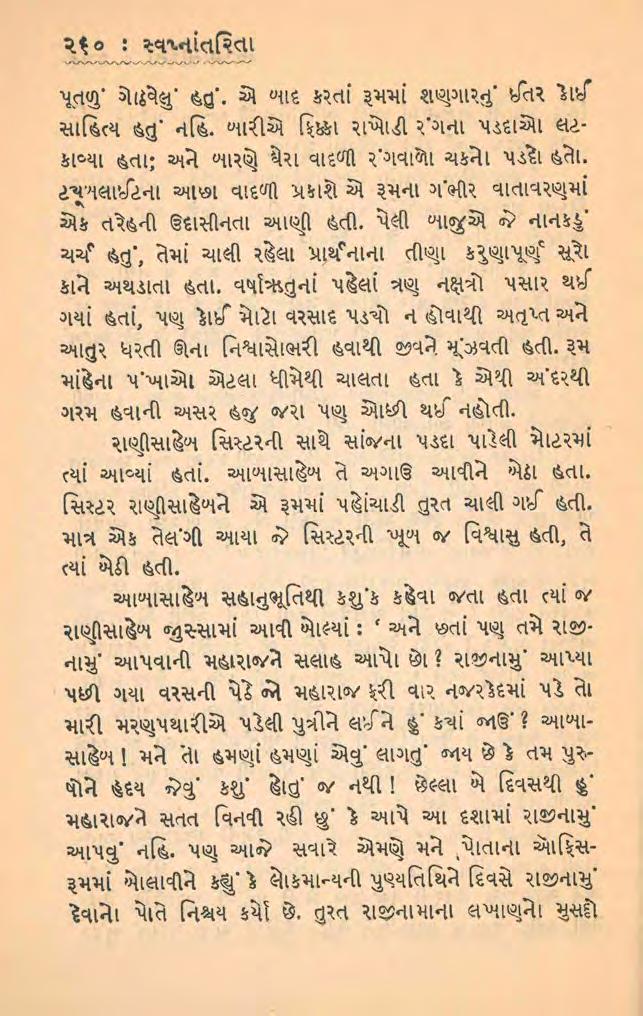 ૨૬૦ : સ્વપ્નાંતરિતા
પૂતળું ગોઠવેલું હતું. એ બાદ કરતાં રૂમમાં શણગારનું ઈતર કોઈ
સાહિત્ય હતું નહિ. બારીએ ફિક્કા રાખોડી રંગના પડદાઓ લટ-
કાવ્યા હતા; અને બારણે ઘેરા વાદળી રંગવાળો ચકનો પડદો હતો.
ટ્યૂબલાઈટના આછા વાદળી પ્રકાશે એ રૂમના ગંભીર વાતાવરણમાં
એક તરેહની ઉદાસીનતા આણી હતી. પેલી બાજુએ જે નાનકડું
ચર્ચ હતું, તેમાં ચાલી રહેલા પ્રાર્થનાના તીણા કરુણાપૂર્ણ સૂરો
કાને અથડાતા હતા. વર્ષાઋતુનાં પહેલાં ત્રણ નક્ષત્રો પસાર થઈ
ગયાં હતાં, પણ કોઈ મોટો વરસાદ પડ્યો ન હોવાથી અતૃપ્ત અને
આતુર ધરતી ઊના નિશ્વાસોભરી હવાથી જીવને મૂંઝવતી હતી. રૂમ
માંહેના પંખાઓ એટલા ધીમેથી ચાલતા હતા કે એથી અંદરથી
ગરમ હવાની અસર હજુ જરા પણ ઓછી થઈ નહોતી.
રાણીસાહેબ સિસ્ટરની સાથે સાંજના પડદા પાડેલી મોટરમાં
ત્યાં આવ્યાં હતાં. આબાસાહેબ તે અગાઉ આવીને બેઠા હતા.
સિસ્ટર રાણીસાહેબને એ રૂમમાં પહોંચાડી તુરત ચાલી ગઈ હતી.
માત્ર એક તેલંગી આયા જે સિસ્ટરની ખૂબ જ વિશ્વાસુ હતી, તે
ત્યાં બેઠી હતી.
આબાસાહેબ સહાનુભૂતિથી કશુંક કહેવા જતા હતા ત્યાં જ
રાણીસાહેબ જુસ્સામાં આવી બોલ્યાં : ‘ અને છતાં પણ તમે રાજી-
નામું આપવાની મહારાજને સલાહ આપો છો ? રાજીનામું આપ્યા
પછી ગયા વરસની પેઠે જો મહારાજ ફરી વાર નજરકેદમાં પડે તો
મારી મરણપથારીએ પડેલી પુત્રીને લઈને હું ક્યાં જાઉં ? આબા-
સાહેબ ! મને તો હમણાં હમણાં એવું લાગતું જાય છે કે તમ પુરુ-
ષોને હૃદય જેવું કશું હોતું જ નથી ! છેલ્લા બે દિવસથી હું
મહારાજને સતત વિનવી રહી છું કે આપે આ દશામાં રાજીનામું
આપવું નહિ. પણ આજે સવારે એમણે મને પોતાના ઑફિસ-
રૂમમાં બોલાવીને કહ્યું કે લોકમાન્યની પુણ્યતિથિને દિવસે રાજીનામું
દેવાનો પોતે નિશ્ચય કર્યો છે. તુરત રાજીનામાના લખાણનો મુસદ્દો